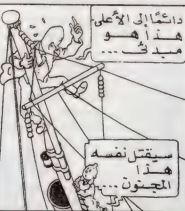 دائمًا إلى الأعلى
هذا هو
مبدئي...
سيقتل نفسه
هذا
المجنون....